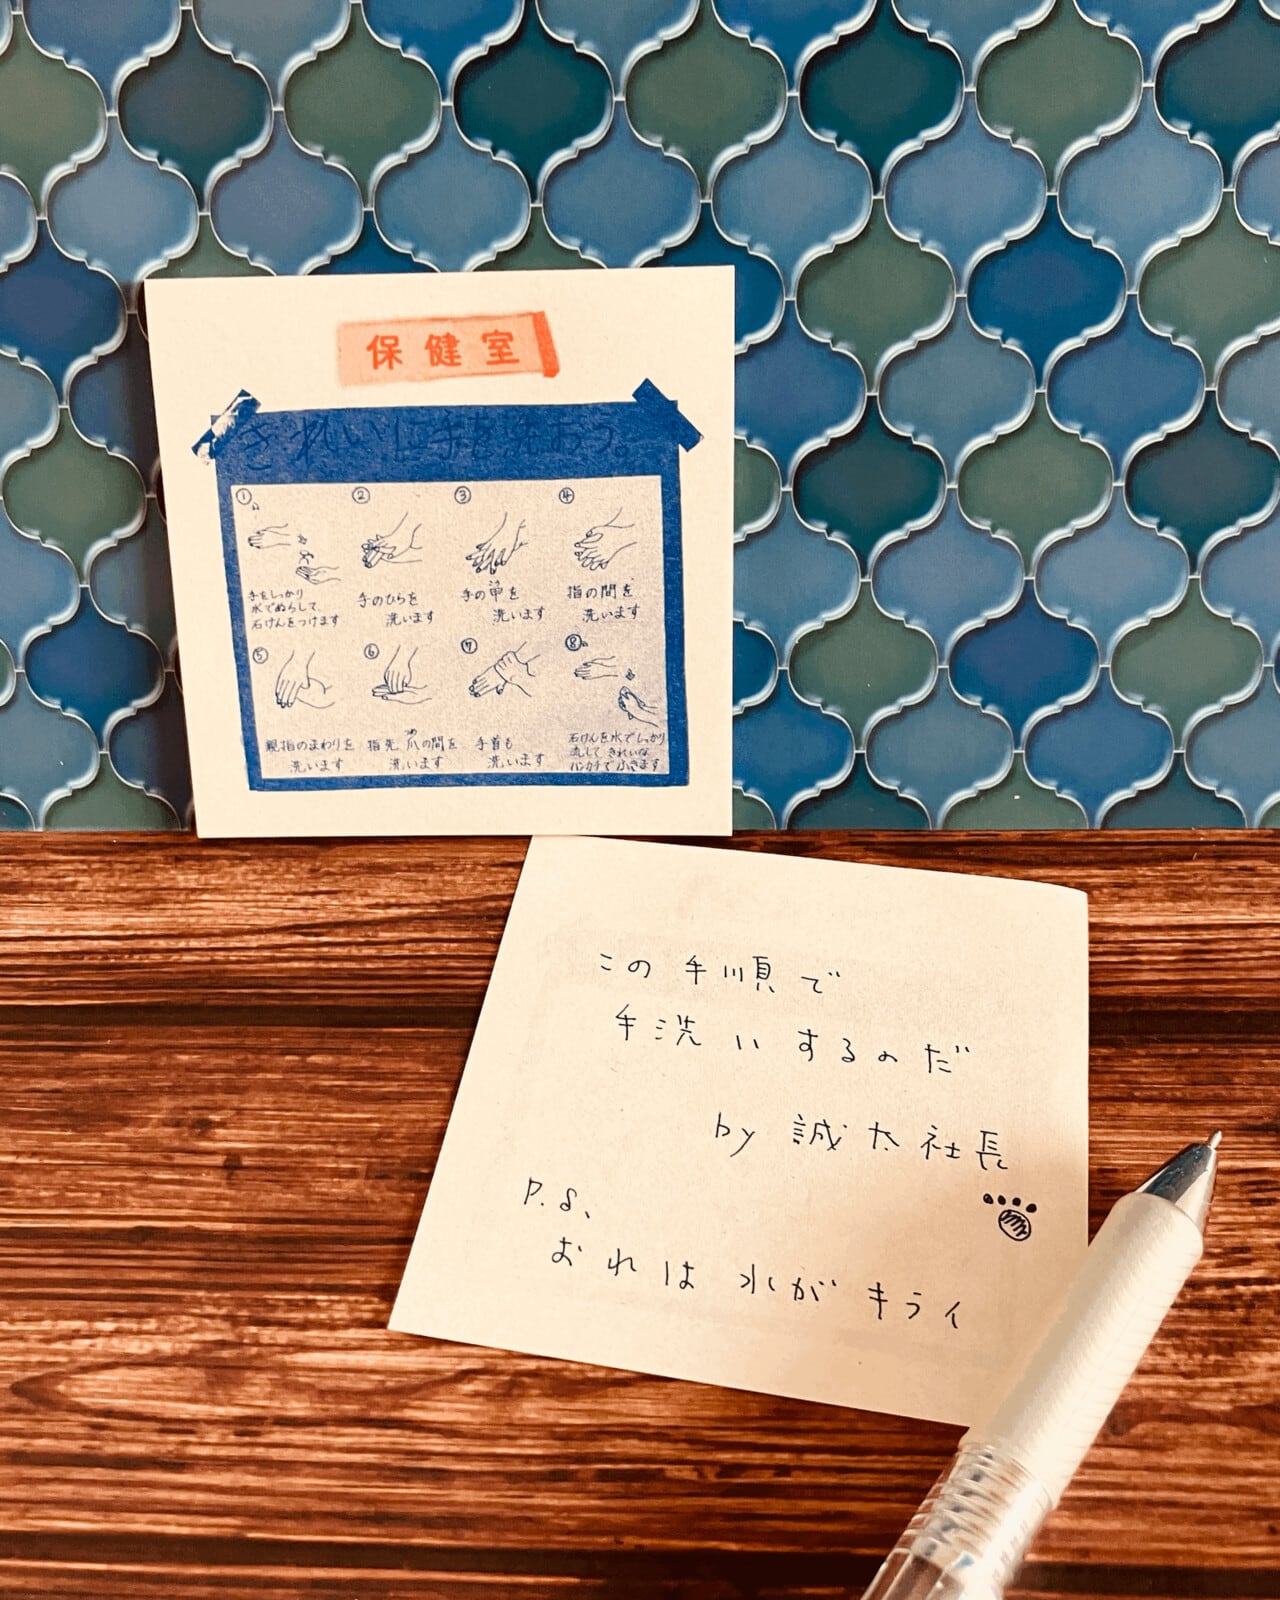 保健室
きれいに手を洗おう。
①
手をしっかり
水でぬらして、
石けんをつけます
②
手のひらを
洗います
③
手の甲を
洗います
④
指の間を
洗います
⑤
親指のまわりを
洗います
⑥
指先 爪の間を
洗います
⑦
手首も
洗います
⑧
石けんを水でしっかり
流して きれいな
ハンカチでふきます
この手順で
手洗いするのだ
by 誠太社長
P.S、
おれは水がキライ